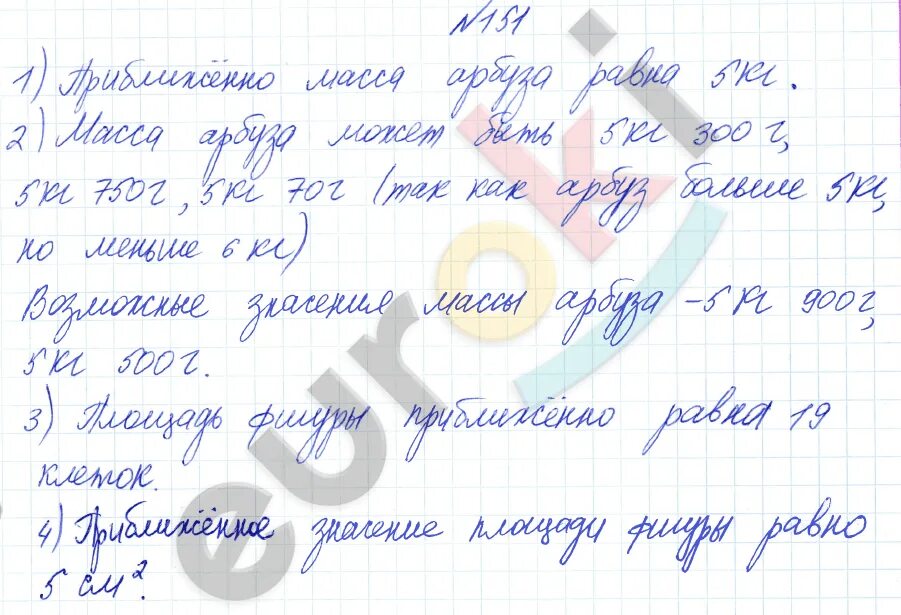 №151
1) Приближённо масса арбуза равна 5кг.
2) Масса арбуза может быть 5кг 300г,
5кг 750г, 5кг 70г (так как арбуз больше 5кг,
но меньше 6 кг)
Возможные значения массы арбуза -5 кг 900г,
5кг 500г.
3) Площадь фигуры приближённо равна 19
клеток.
4) Приближённое значение площади фигуры равно
5 см².
euroki